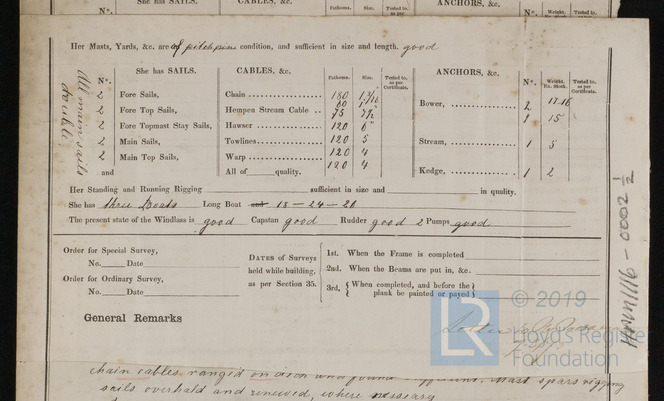 She has SAILS. CABLES, &c. Fathoms. Size. Tested to as per ANCHORS, &c. Weight. Ex. Stock. Tested to as per Certificate.
Nº. Nº.
Her Masts, Yards, &c. are of pitchpine condition, and sufficient in size and length. good
She has SAILS. CABLES, &c. Fathoms. Size. Tested to as per Certificate. ANCHORS, &c. Nº. Weight. Ex. Stock. Tested to as per Certificate.
Nº.
2 Fore Sails, Chain 180 1 3/16 Bower, 2 17.16
60
2 Fore Top Sails, Hempen Stream Cable 75 7½ 1 15
2 Fore Topmast Stay Sails, Hawser 120 6"
2 Main Sails, Towlines 120 5 Stream, 1 5
2 Main Top Sails, Warp 120 4
and All of quality. 120 4 Kedge, 1 2
All main sails double
Her Standing and Running Rigging sufficient in size and in quality.
She has three Boats Long Boat and 18 - 24 - 20
The present state of the Windlass is good Capstan good Rudder good 2 Pumps good
Order for Special Survey,
No. Date
Order for Ordinary Survey,
No. Date
DATES of Surveys
held while building,
as per Section 35.
1st. When the Frame is completed
2nd. When the Beams are put in, &c.
3rd, { When completed, and before the }
plank be painted or payed
General Remarks
LR © 2019
Lloyd's Register
Foundation
chain cables ranged on deck and found sufficient. Mast spars rigging
sails overhald and renewed, where nessicary
- 0002 ½